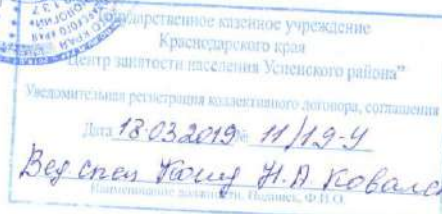 Государственное казенное учреждение
Краснодарского края
Центр занятости населения Успенского района"
Уведомительная регистрация коллективного договора, соглашения
Дата 18.03.2019 № 11/19-У
Вед спец Н.А. Ковале
Наименование должности, Подпись, Ф.И.О.